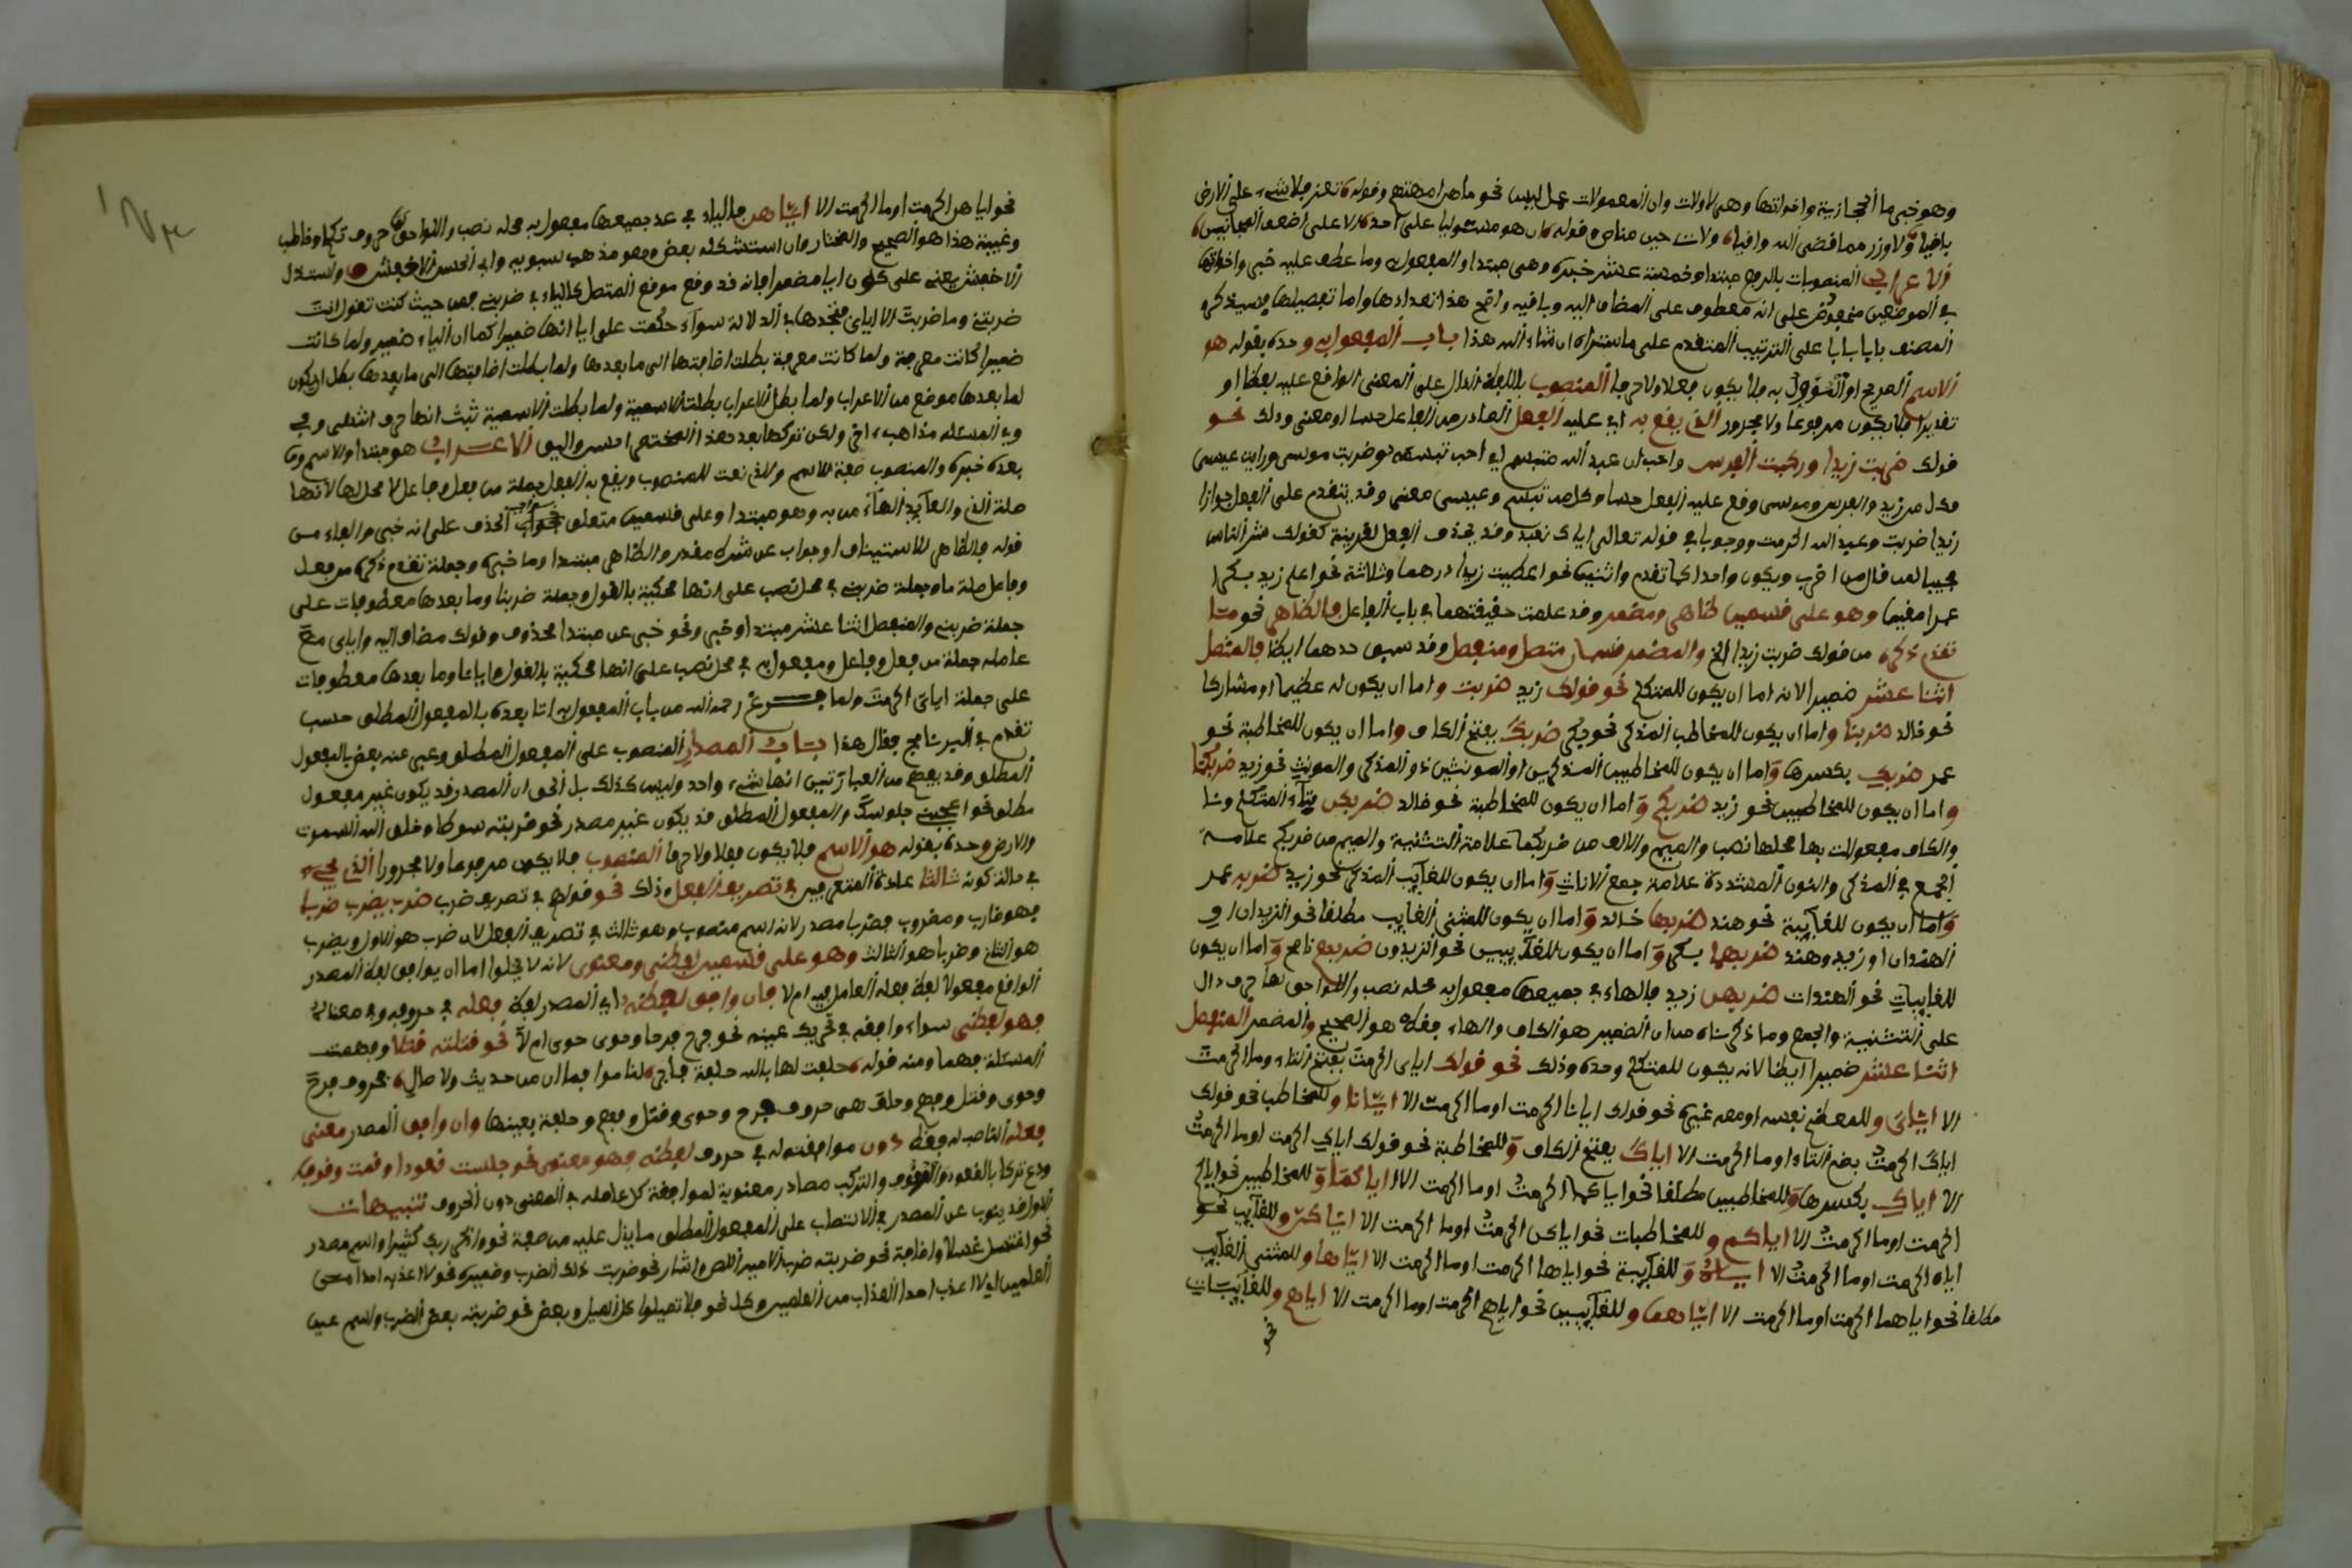 وهو خبر ما الحجازية واخواتها وهي لا ولات وان المعمولات عمل ليس نحو ما هن امهتهم وقوله تعز فلا شيء على الارض
باقيا ولا وزر مما قضى الله واقيا ولات حين مناص وقوله ان هو مستوليا على احد الا على اضعف المجانين
الاعراب المنصوبات بالرفع مبتدا وخمسة عشر خبره وهي مبتدا والمفعول به وما عطف عليه خبر واخواتها
في الموضعين مخفوض على انه معطوف على المضاف اليه وباقيه واضح هذا تعدادها واما تفصيلها فسيذكره
المصنف بابا بابا على الترتيب المتقدم على ما ستراه ان شاء الله هذا باب المفعول به وحده بقوله هو
الاسم الصريح او المؤول به فلا يكون فعلا ولا حرفا المنصوب باللفظ الدال على المعنى الواقع عليه لفظا او
تقديرا فلا يكون مرفوعا ولا مجرورا الذي يقع به اي عليه الفعل الصادر من الفاعل حسا او معنى وذلك نحو
قولك ضربت زيدا وركبت الفرس واحب ان عبد الله متبسم اي احب تبسمه وضربت موسى ورايت عيسى
فكل من زيد والفرس وموسى وقع عليه الفعل حسا وكل من تبسم وعيسى معنى وقد يتقدم على الفعل جوازا
زيدا ضربت وعبد الله اكرمت ووجوبا في قوله تعالى اياك نعبد وقد يحذف الفعل لقرينة كقولك شر الناس
مجيبا لمن قال من اضرب ويكون واحدا كما تقدم واثنين نحو اعطيت زيدا درهما وثلاثة نحو اعلم زيد بكرا
عمرا مقيما وهو على قسمين ظاهر ومضمر وقد علمت حقيقتهما في باب الفاعل فالظاهر نحو ما
تقدم ذكره من قولك ضربت زيدا الخ والمضمر قسمان متصل ومنفصل وقد سبق حدهما ايضا فالمتصل
اثنا عشر ضميرا لانه اما ان يكون للمتكلم نحو قولك زيد ضربني واما ان يكون له عظيما او مشاركا
نحو خالد ضربنا واما ان يكون للمخاطب المذكر نحو بكر ضربك بفتح الكاف واما ان يكون للمخاطبة نحو
عمر ضربك بكسرها واما ان يكون للمخاطبين المذكرين او المونثين او المذكر والمونث نحو زيد ضربكما
واما ان يكون للمخاطبين نحو زيد ضربكم واما ان يكون للمخاطبة نحو خالد ضربكن فياء المتكلم ونا
والكاف مفعولات بها محلها نصب والميم والالف من ضربكما علامة التثنية والميم من ضربكم علامة
الجمع في المذكر والنون المشددة علامة جمع الاناث واما ان يكون للغائب المذكر نحو زيد ضربه عمر
واما ان يكون للغائبة نحو هند ضربها خالد واما ان يكون للمثنى الغائب مطلقا نحو الزيدان او
الهندان او زيد وهند ضربهما بكر واما ان يكون للغائبين نحو الزيدون ضربهم ناصح واما ان يكون
للغايبات نحو الهندات ضربهن زيد فالهاء في جميعها مفعول به محله نصب واللواحق لها حرف دال
على التثنية والجمع وما ذكرناه من ان الضمير هو الكاف والهاء فقط هو الصحيح والمضمر المنفصل
اثنا عشر ضميرا ايضا لانه يكون للمتكلم وحده وذلك نحو قولك اياي اكرمت بفتح التاء وما اكرمت
الا اياي وللمعظم نفسه او معه غيره نحو قولك ايانا اكرمت او ما اكرمت الا ايانا وللمخاطب نحو قولك
اياك اكرمت بضم التاء او ما اكرمت الا اياك بفتح الكاف وللمخاطبة نحو قولك اياك اكرمت او ما اكرمت
الا اياك بكسرها وللمخاطبين مطلقا نحو اياكما اكرمت او ما اكرمت الا اياكما وللمخاطبين نحو اياكم
اكرمت او ما اكرمت الا اياكم وللمخاطبات نحو اياكن اكرمت او ما اكرمت الا اياكن وللغائب نحو
اياه اكرمت او ما اكرمت الا اياه وللغائبة نحو اياها اكرمت او ما اكرمت الا اياها وللمثنى الغائب
مطلقا نحو اياهما اكرمت او ما اكرمت الا اياهما وللغائبين نحو اياهم اكرمت او ما اكرمت الا اياهم وللغائبات
نحو
نحو اياهن اكرمت او ما اكرمت الا اياهن فالياء في عد جميعها مفعول به محله نصب واللواحق لها حروف تكلم وخطاب
وغيبة هذا هو الصحيح والمختار وان استشكله بعض وهو مذهب سبويه وابي الحسن الاخفش واستدل
الاخفش يعني على كون ايا مضمرا بانه قد وقع موقع المتصل كالياء في ضربني فمن حيث كنت تقول انت
ضربتني وما ضربت الا اياي فتجدها في الدلالة سواء حكمت على ايا انها ضميرا كما ان الياء ضمير ولما كانت
ضميرا كانت معرفة ولما كانت معرفة بطلت اضافتها الى ما بعدها ولما بطلت اضافتها الى ما بعدها بطل ان يكون
لما بعدها موضع من الاعراب ولما بطل الاعراب بطلت الاسمية ولما بطلت الاسمية ثبت انها حرف انتهى
وفي المسئلة مذاهب اخر ولكن تركها بعد هذا المختصر الاعراب هو مبتدا والاسم وما
بعده خبره والمنصوب صفة للاسم والذي نعت للمنصوب ويقع به الفعل جملة من فعل وفاعل لا محل لها لانها
صلة الذي والعايد الهاء من به وهو مبتدا وعلى قسمين متعلق بواجب الحذف على انه خبر والفاء من
قوله فالظاهر للاستيناف او جواب عن شرط مقدر والظاهر مبتدا وما خبره وجملة تقدم ذكره من فعل
وفاعل صلة ما وجملة ضربني في محل نصب على انها محكية بالقول وجملة ضربنا وما بعدها معطوفات على
جملة ضربني والمنفصل اثنا عشر مبتدا وخبر ونحو خبر عن مبتدا محذوف وقولك مضاف اليه واياي مع
عامله جملة من فعل وفاعل ومفعول به في محل نصب على انها محكية بالقول وايانا وما بعدها معطوفات
على جملة اياي اكرمت ولما فرغ رحمه الله من باب المفعول به اتا بعده بالمفعول المطلق حسب
تقدم في البرنامج فقال هذا باب المصدر المنصوب على المفعول المطلق وعبر عنه بعض بالمفعول
المطلق وقد يفهم من العبارتين انها شيء واحد وليس كذلك بل الحق ان المصدر قد يكون غير مفعول
مطلق نحو اعجبني جلوسك والمفعول المطلق قد يكون غير مصدر نحو ضربته سوطا وخلق الله السموت
والارض وحده بقوله هو الاسم فلا يكون فعلا ولا حرفا المنصوب فلا يكون مرفوعا ولا مجرورا الذي يجيء
في حالة كونه ثالثا عادة المتصرفين في تصريف الفعل وذلك نحو قولهم في تصريف ضرب ضرب يضرب ضربا
فهو ضارب ومضروب فضربا مصدر لانه اسم منصوب وهو ثالث في تصريف الفعل لان ضرب هو الاول ويضرب
هو الثاني وضربا هو الثالث وهو على قسمين لفظي ومعنوي لانه لا يخلوا اما ان يوافق لفظ المصدر
الواقع مفعولا لفظ فعله العامل فيه ام لا فان وافق لفظه اي المصدر لفظ فعله في حروفه وفي معناه
فهو لفظي سواء وافقه في تحريك عينه نحو فرح فرحا وحوى حوى ام لا نحو قتلته قتلا وفهمت
المسئلة فهما ومنه قوله حلفت لها بالله حلفة فاجر لناموا فما ان من حديث ولا صال فحروف فرح
وحوى وقتل وفهم وحلف هي حروف فرح وحوى وقتل وفهم وحلفة بعينها وان وافق المصدر معنى
فعله الناصب له فقط دون موافقته له في حروف لفظه فهو معنوي نحو جلست قعودا وقمت وقوفا
ودع تركا بالقعود والوقوف والترك مصادر معنوية لموافقة كل عامله في المعنى دون الحروف تنبيهات
الاول قد ينوب عن المصدر في الانتصاب على المفعول المطلق ما يدل عليه من صفة نحو واذكر ربك كثيرا واسم مصدر
نحو اغتسل غسلا واضافة نحو ضربته ضرب الامير اللص واشار نحو ضربت ذلك الضرب وضميره نحو لا اعذبه احدا من
العلمين اي لا اعذب احدا العذاب من العلمين وكل نحو فلا تميلوا كل الميل وبعض نحو ضربته بعض الضرب واسم عين